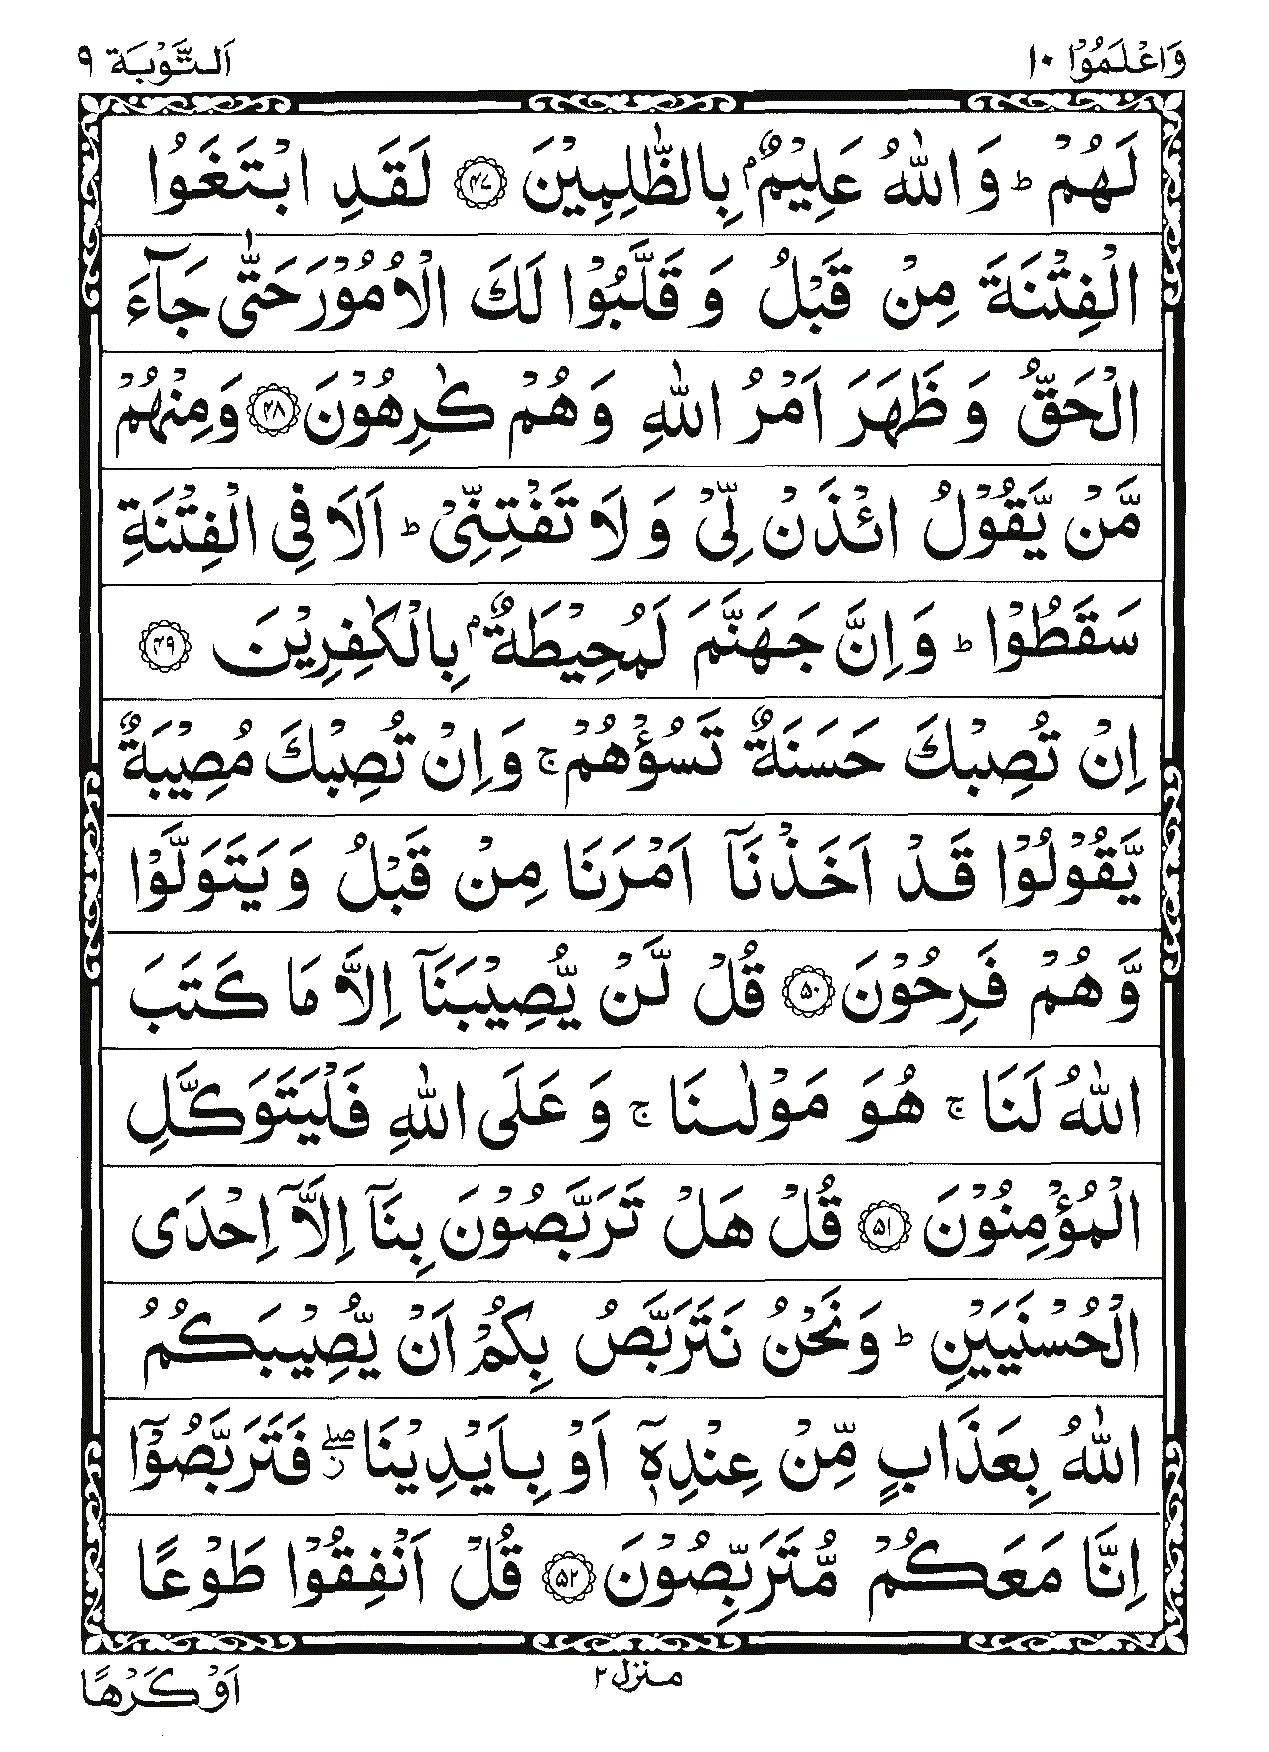 وَاعْلَمُوْٓا ١٠
اَلتَّوْبَة ٩
لَهُمْ ؕ وَ اللّٰهُ عَلِيْمٌۢ بِالظّٰلِمِيْنَ ۴۷ لَقَدِ ابْتَغَوُا
الْفِتْنَةَ مِنْ قَبْلُ وَ قَلَّبُوْا لَكَ الْاُمُوْرَ حَتّٰى جَآءَ
الْحَقُّ وَ ظَهَرَ اَمْرُ اللّٰهِ وَ هُمْ كٰرِهُوْنَ ۴۸ وَمِنْهُمْ
مَّنْ يَّقُوْلُ ائْذَنْ لِّىْ وَ لَا تَفْتِنِّىْ ؕ اَلَا فِى الْفِتْنَةِ
سَقَطُوْا ؕ وَ اِنَّ جَهَنَّمَ لَمُحِيْطَةٌۢ بِالْكٰفِرِيْنَ ۴۹
اِنْ تُصِبْكَ حَسَنَةٌ تَسُؤْهُمْ ۚ وَاِنْ تُصِبْكَ مُصِيْبَةٌ
يَّقُوْلُوْا قَدْ اَخَذْنَآ اَمْرَنَا مِنْ قَبْلُ وَ يَتَوَلَّوْا
وَّ هُمْ فَرِحُوْنَ ۵۰ قُلْ لَّنْ يُّصِيْبَنَآ اِلَّا مَا كَتَبَ
اللّٰهُ لَنَا ۚ هُوَ مَوْلٰىنَا ۚ وَ عَلَى اللّٰهِ فَلْيَتَوَكَّلِ
الْمُؤْمِنُوْنَ ۵۱ قُلْ هَلْ تَرَبَّصُوْنَ بِنَآ اِلَّآ اِحْدَى
الْحُسْنَيَيْنِ ؕ وَنَحْنُ نَتَرَبَّصُ بِكُمْ اَنْ يُّصِيْبَكُمُ
اللّٰهُ بِعَذَابٍ مِّنْ عِنْدِهٖٓ اَوْ بِاَيْدِيْنَا ۖ فَتَرَبَّصُوْٓا
اِنَّا مَعَكُمْ مُّتَرَبِّصُوْنَ ۵۲ قُلْ اَنْفِقُوْا طَوْعًا
منزل ٢
اَوْ كَرْهًا